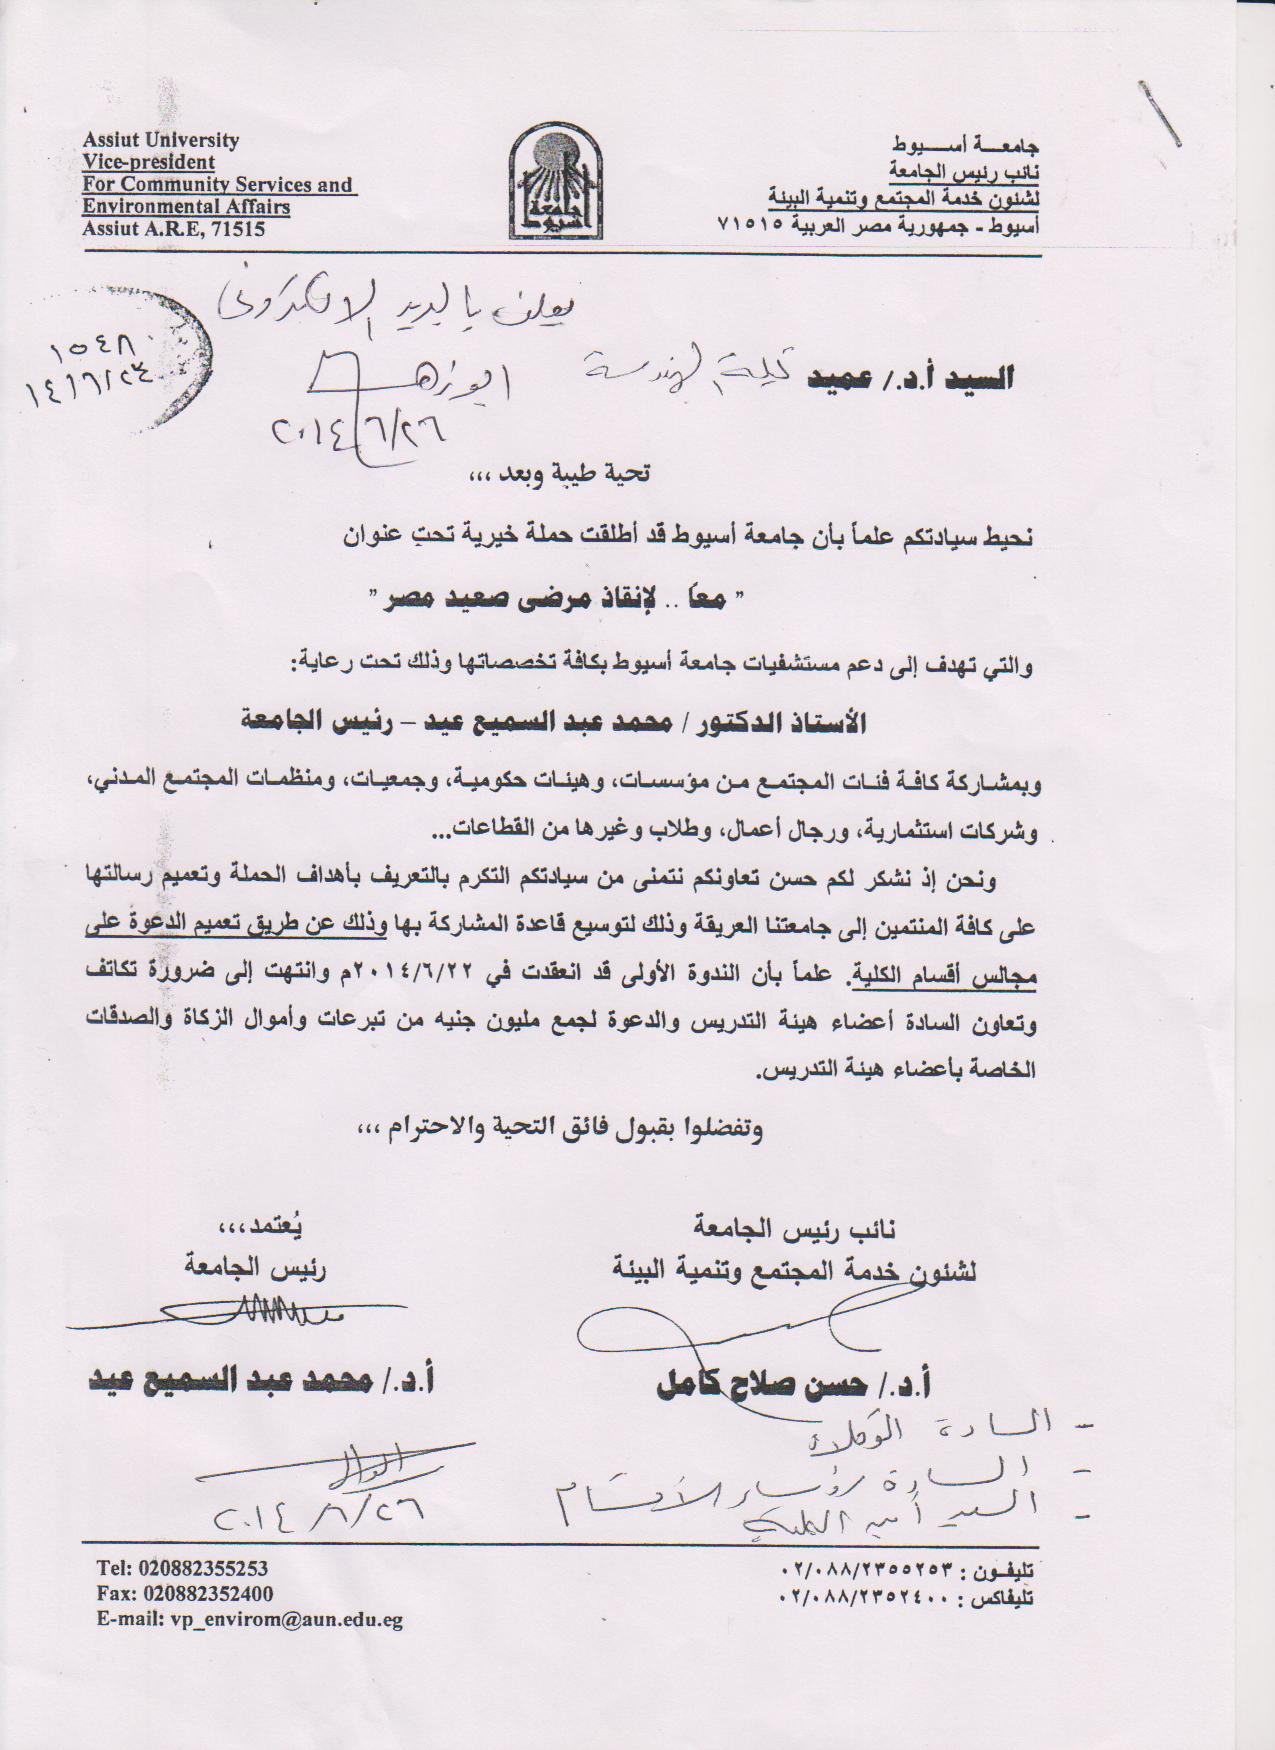 Assiut University
Vice-president
For Community Services and
Environmental Affairs
Assiut A.R.E, 71515
جامعة أسيوط
جامعة أسيوط
نائب رئيس الجامعة
لشئون خدمة المجتمع وتنمية البيئة
أسيوط - جمهورية مصر العربية ٧١٥١٥
يعلن بالبريد الالكترونى
١٥٤٨
١٤/٦/٢٤
السيد أ.د./ عميد كلية الهندسة
ابوزهـ
٢٠١٤/٦/٢٦
تحية طيبة وبعد ،،،
نحيط سيادتكم علماً بأن جامعة أسيوط قد أطلقت حملة خيرية تحت عنوان
" معاً .. لإنقاذ مرضى صعيد مصر "
والتي تهدف إلى دعم مستشفيات جامعة أسيوط بكافة تخصصاتها وذلك تحت رعاية:
الأستاذ الدكتور / محمد عبد السميع عيد – رئيس الجامعة
وبمشاركة كافة فئات المجتمع من مؤسسات، وهيئات حكومية، وجمعيات، ومنظمات المجتمع المدني،
وشركات استثمارية، ورجال أعمال، وطلاب وغيرها من القطاعات...
ونحن إذ نشكر لكم حسن تعاونكم نتمنى من سيادتكم التكرم بالتعريف بأهداف الحملة وتعميم رسالتها
على كافة المنتمين إلى جامعتنا العريقة وذلك لتوسيع قاعدة المشاركة بها وذلك عن طريق تعميم الدعوة على
مجالس أقسام الكلية. علماً بأن الندوة الأولى قد انعقدت في ٢٠١٤/٦/٢٢م وانتهت إلى ضرورة تكاتف
وتعاون السادة أعضاء هيئة التدريس والدعوة لجمع مليون جنيه من تبرعات وأموال الزكاة والصدقات
الخاصة بأعضاء هيئة التدريس.
وتفضلوا بقبول فائق التحية والاحترام ،،،
نائب رئيس الجامعة
لشئون خدمة المجتمع وتنمية البيئة
أ.د./ حسن صلاح كامل
يُعتمد،،،
رئيس الجامعة
أ.د./ محمد عبد السميع عيد
- السادة الوكلاء
- السادة رؤساء الأقسام
- السيد أمين الكلية
٢٠١٤/٦/٢٦
Tel: 020882355253
Fax: 020882352400
E-mail: vp_envirom@aun.edu.eg
تليفون : ٠٢/٠٨٨/٢٣٥٥٢٥٣
تليفاكس : ٠٢/٠٨٨/٢٣٥٢٤٠٠